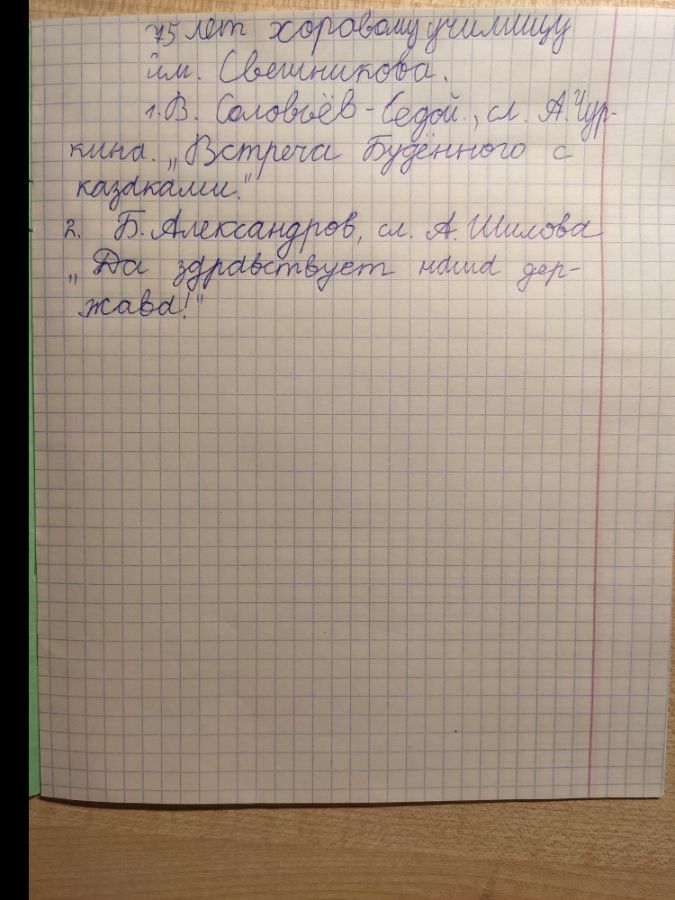 75 лет хоровому училищу
им. Свешникова.
1. В. Соловьёв-Седой., сл. А. Чур-
кина. „Встреча Будённого с
казаками."
2. Б. Александров, сл. А. Шилова
„Да здравствует наша дер-
жава!"